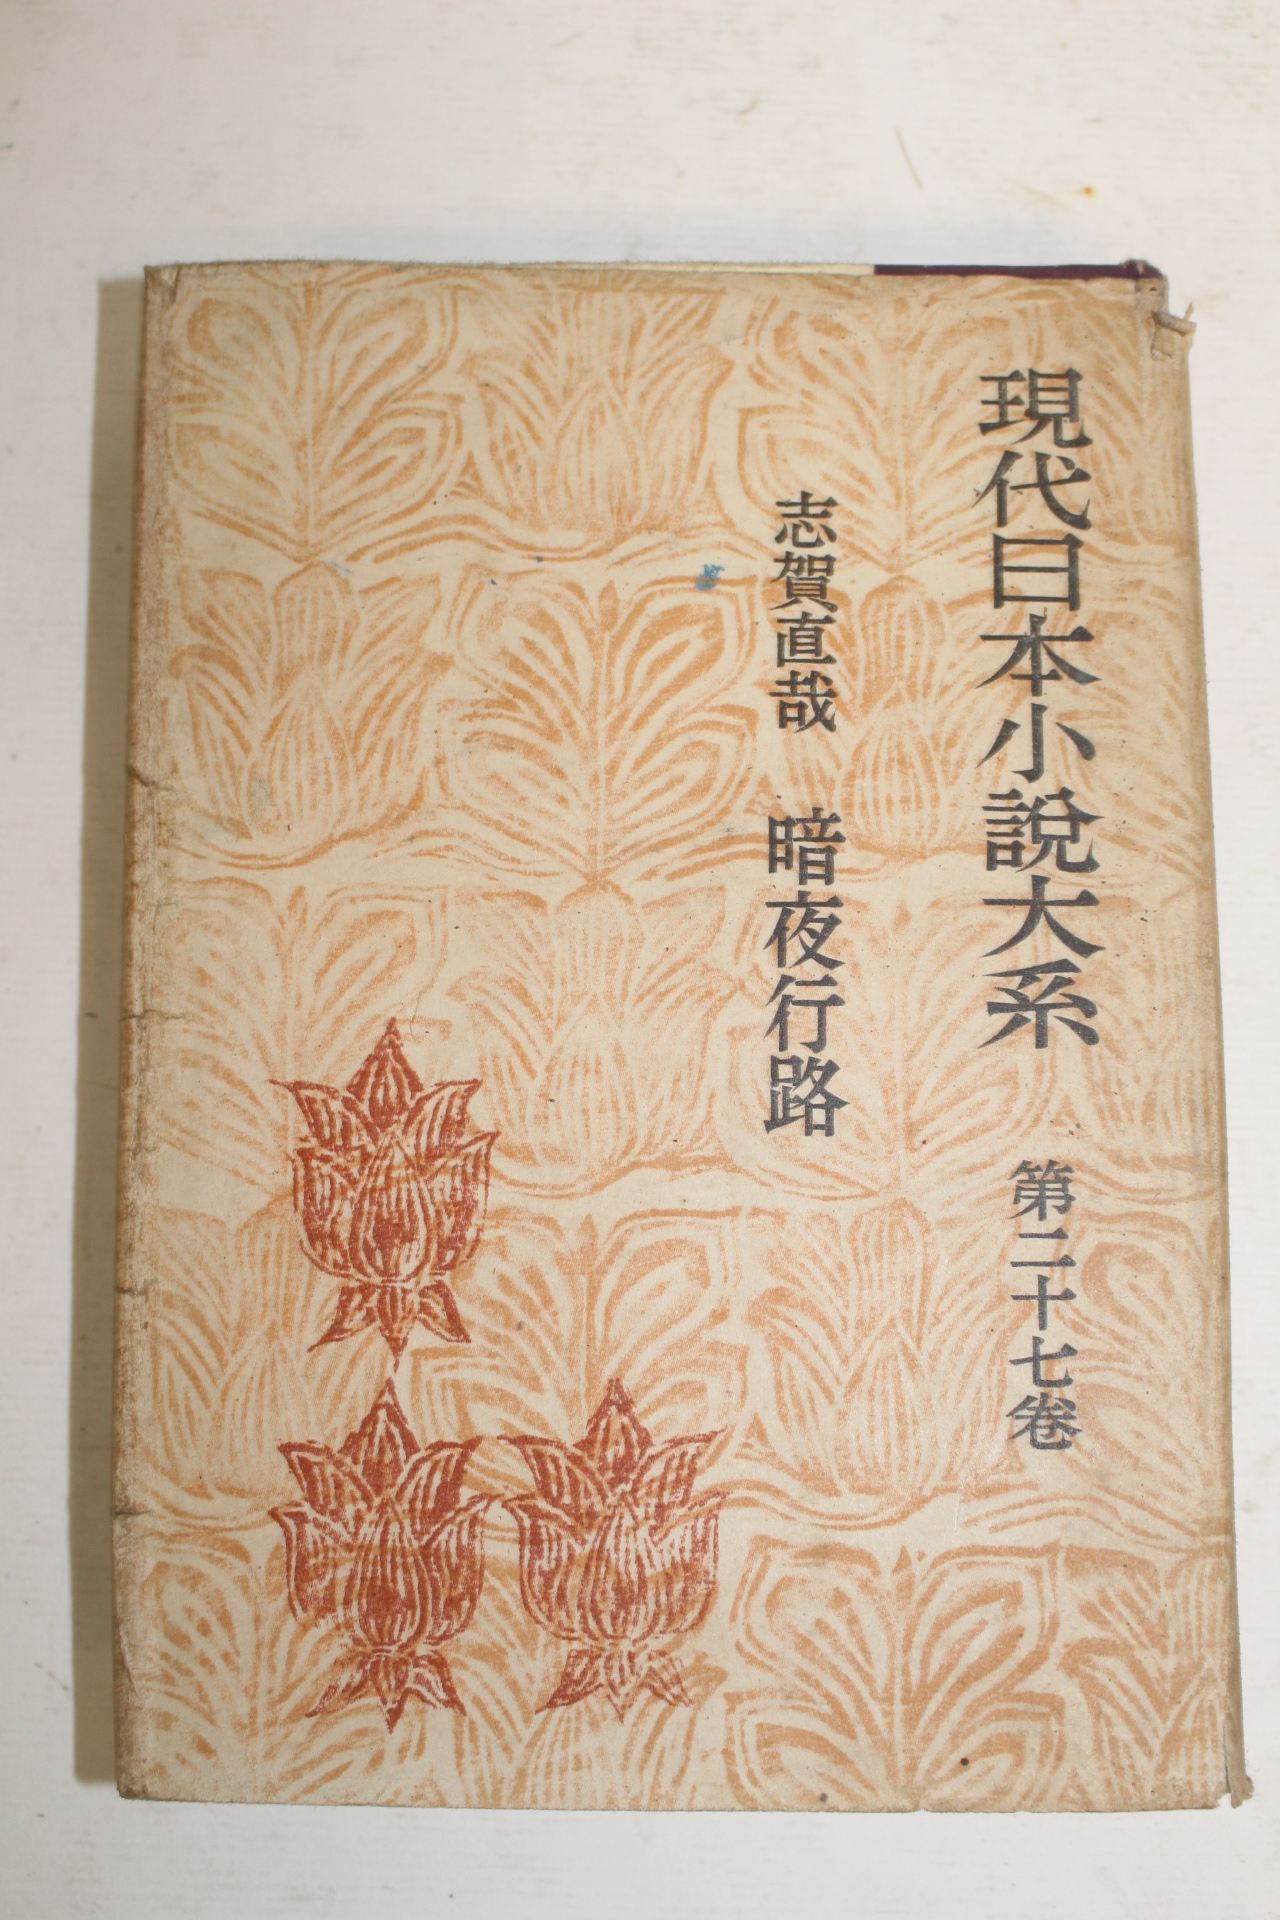 現代日本小說大系 第二十七卷
志賀直哉 暗夜行路